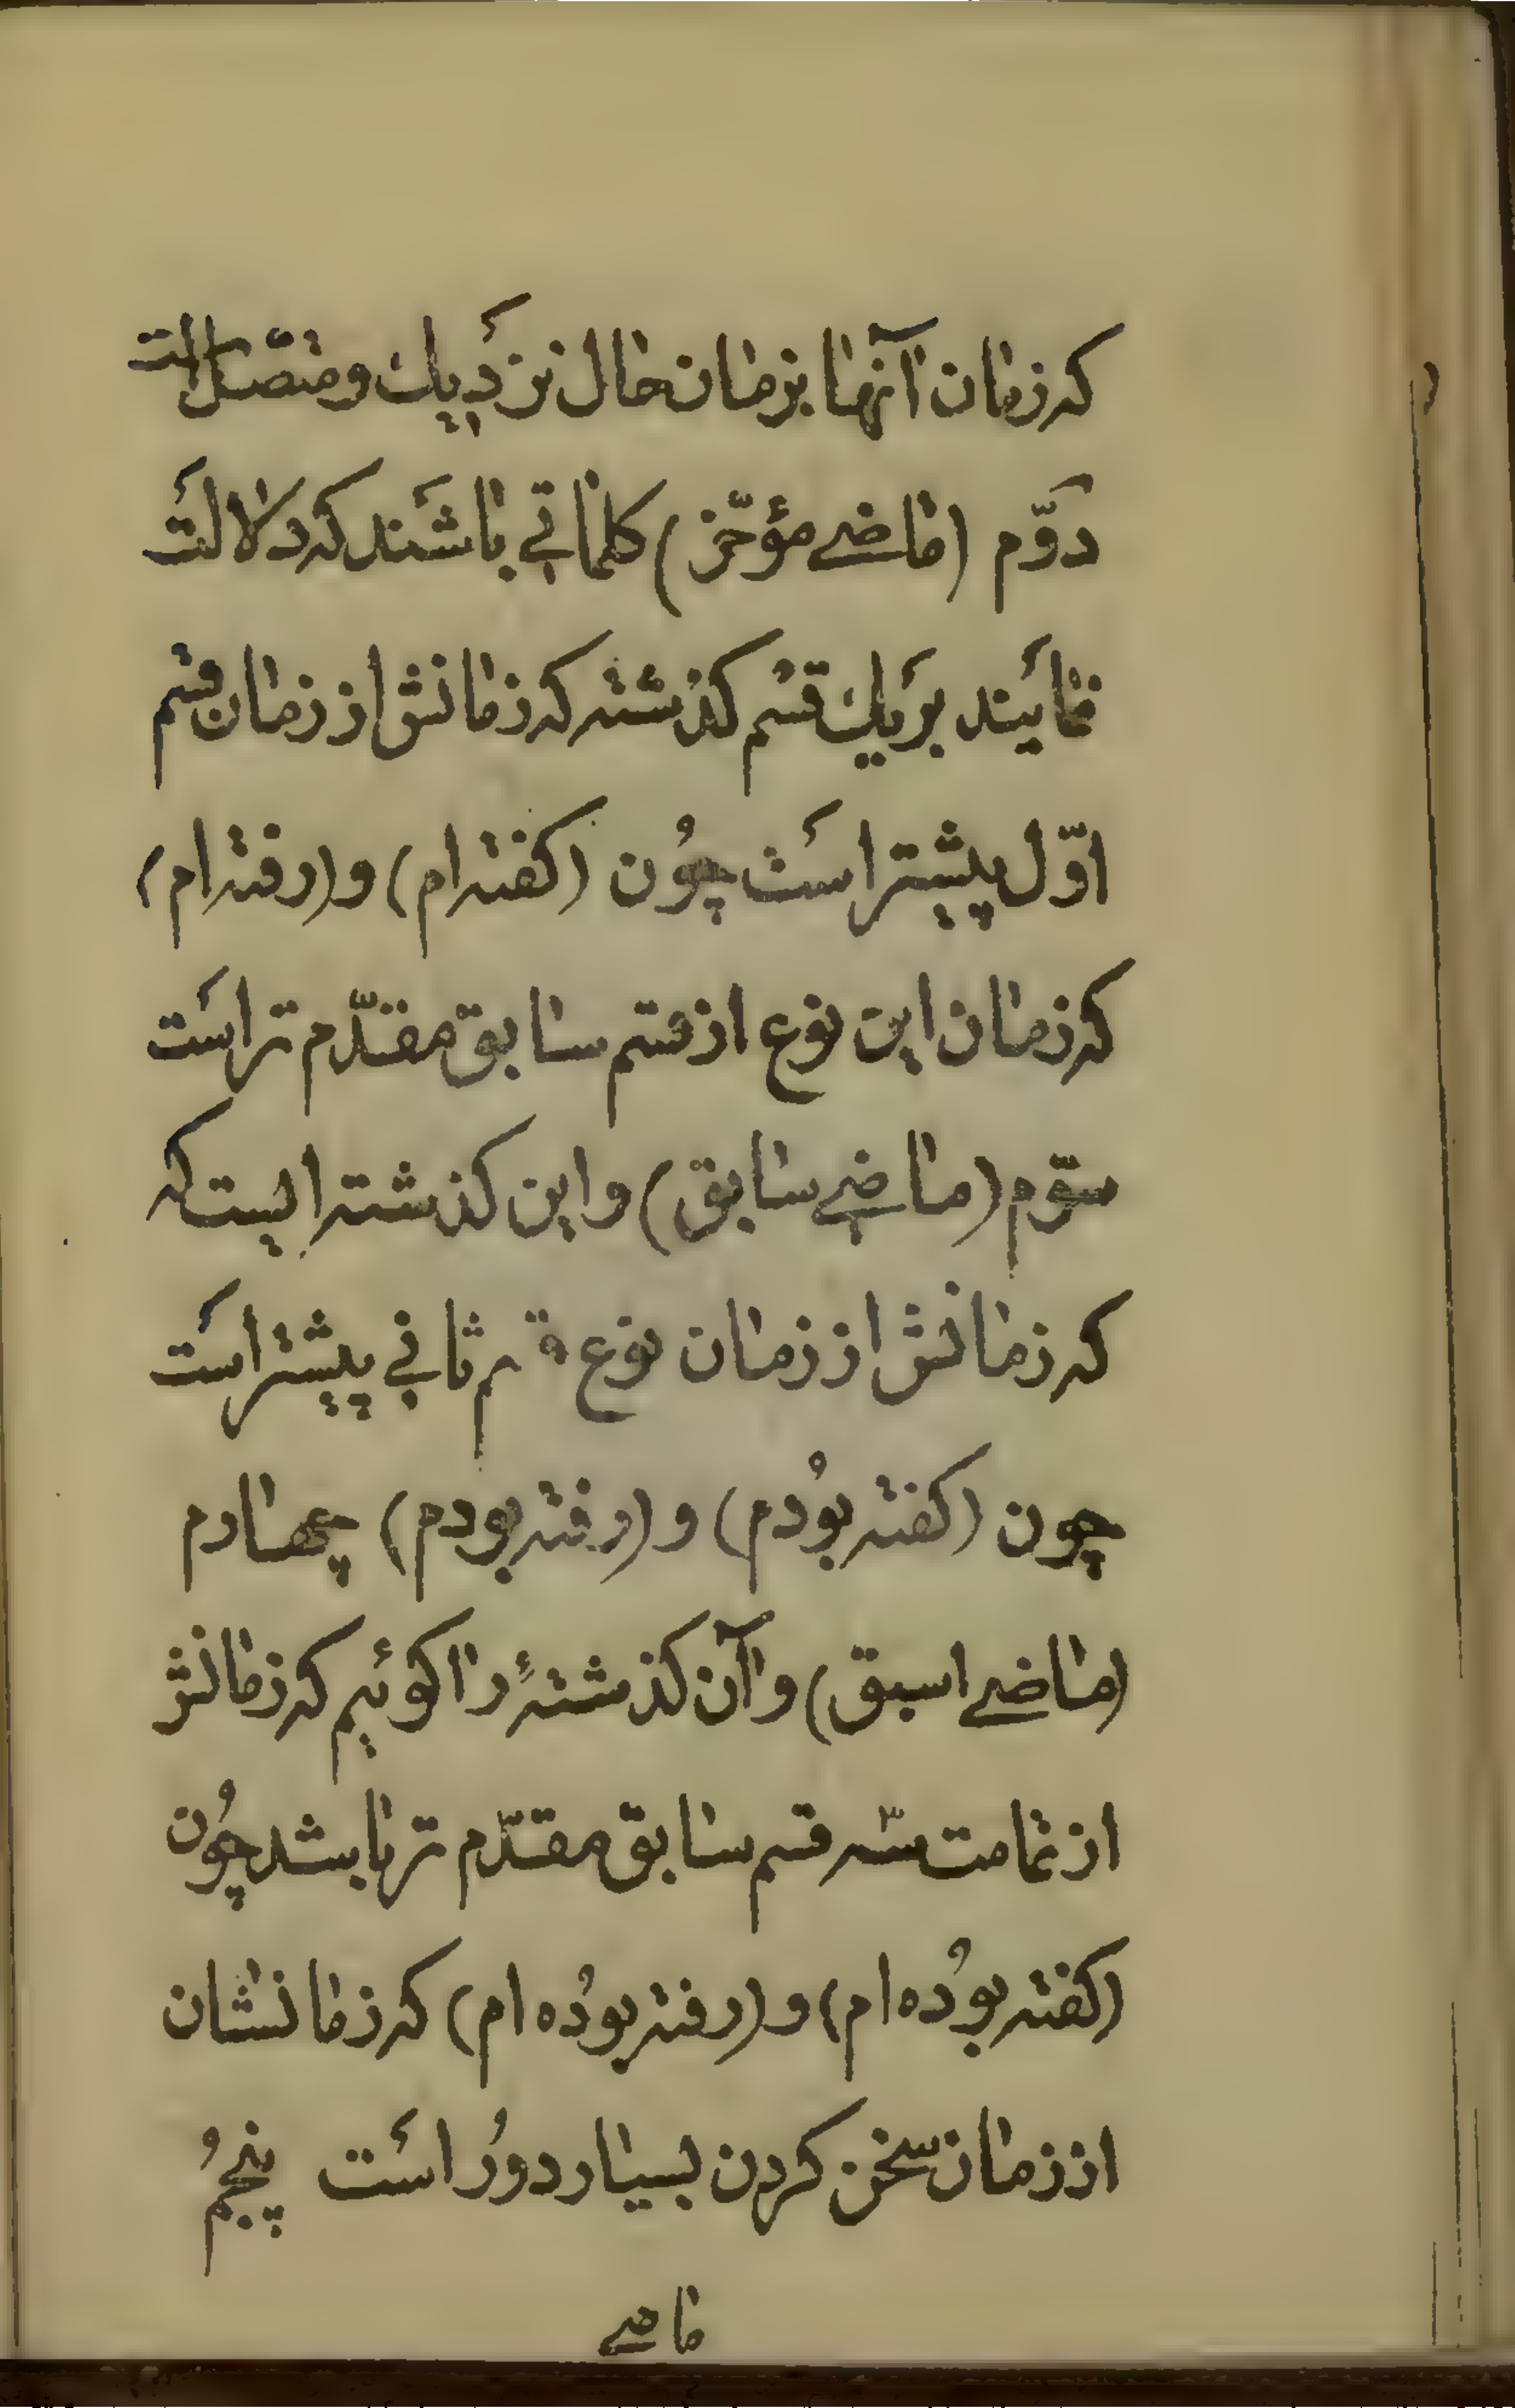 که زمان آنها بزمان حال نزدیك و متّصل است
دوّم (ماضے مؤخّر) کلماتي باشَند که دلالَت
نمایَند برَیك قسْم کذشته که زمانش از زمان قسم
اوّل پیشتر اسَت چُون (کفته ام) و (رفته ام)
که زمان این نوع از قسم سابق مقدّم تر اسَت
سوّم (ماضي سابق) و این کذشته ایست که
که زمانش از زمان نوع ثاني پیشتر اسَت
چون (کفته بُودم) و (رفته بودم) چهارم
(ماضے اسبق) و آن کذشتهٔ را کوئیم که زمانش
از تمامت سه قسم سابق مقدّم تر باشد چُون
(کفته بوُده ام) و (رفته بوُده ام) که زمانشان
از زمان سخن کردن بسیار دوُر اسَت پنجمُ
ماضے